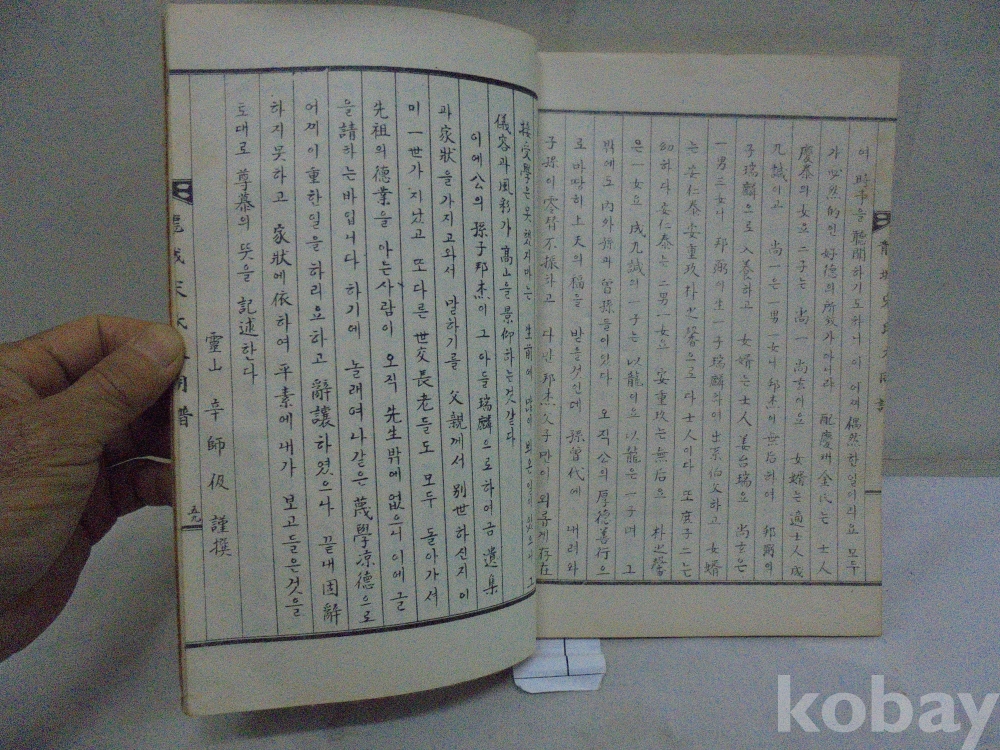 여 時事를 聽聞하기도하니 이 어찌 偶然한일이라요 모두
가 必然的인 好德의 所致가아니랴 配慶州金氏는 士人
慶泰의 女요 二子는 尙一 尙玄이으 女婿는 適士人 成
九誠이고 尙一은 一男一女니 邱杰이 世后하여 邦弼의
子 瑞麟으로 入養하고 女婿는 士人 姜 瑞요 尙玄은
一男三女니 邦弼의 生一子 瑞麟 出系伯父하고 女婿
는 安仁泰 安重玫 朴之馨으로 다 士人이다 또 庶子二는
幼하다 安仁泰는 二男一女요 安重玫는 無后요 朴之馨
은 一女요 成九誠의 一子는 以龍이으 以龍은 一子며 그
밖에도 內外孫과 曾孫들이있다 오직 公의 厚德善行으
로 마땅히 上天의 福을 받을것인데 孫曾代에 내려와
子孫이 零替不振하고 다만 邦杰父子만이 외롭게 存在
接受學은 못했지마는 生前에 많이 뵈온 일이 있으며 그
儀容과 風彩가 高山을 景仰하는것같다
이에 公의 孫子 邦杰이 그 아들 瑞麟으로 하여금 遺集
과 家狀을 가지고와서 말하기를 父親께서 別世하신지 이
미 一世가 지났고 또 다른 世交長老들도 모두 돌아가셔
先祖의 德業을 아는사람이 오직 先生밖에 없으니 이에 글
을 請하는바입니다 하기에 놀래여 나같은 蔑學凉德으로
어찌 이 중한일을 하리요하고 辭讓하였으나 끝내 固辭
하지못하고 家狀에 依하여 平素에 내가 보고들은것을
토대로 尊慕의 뜻을 記述한다
靈山 辛 師 仮 謹撰
五九
kobay